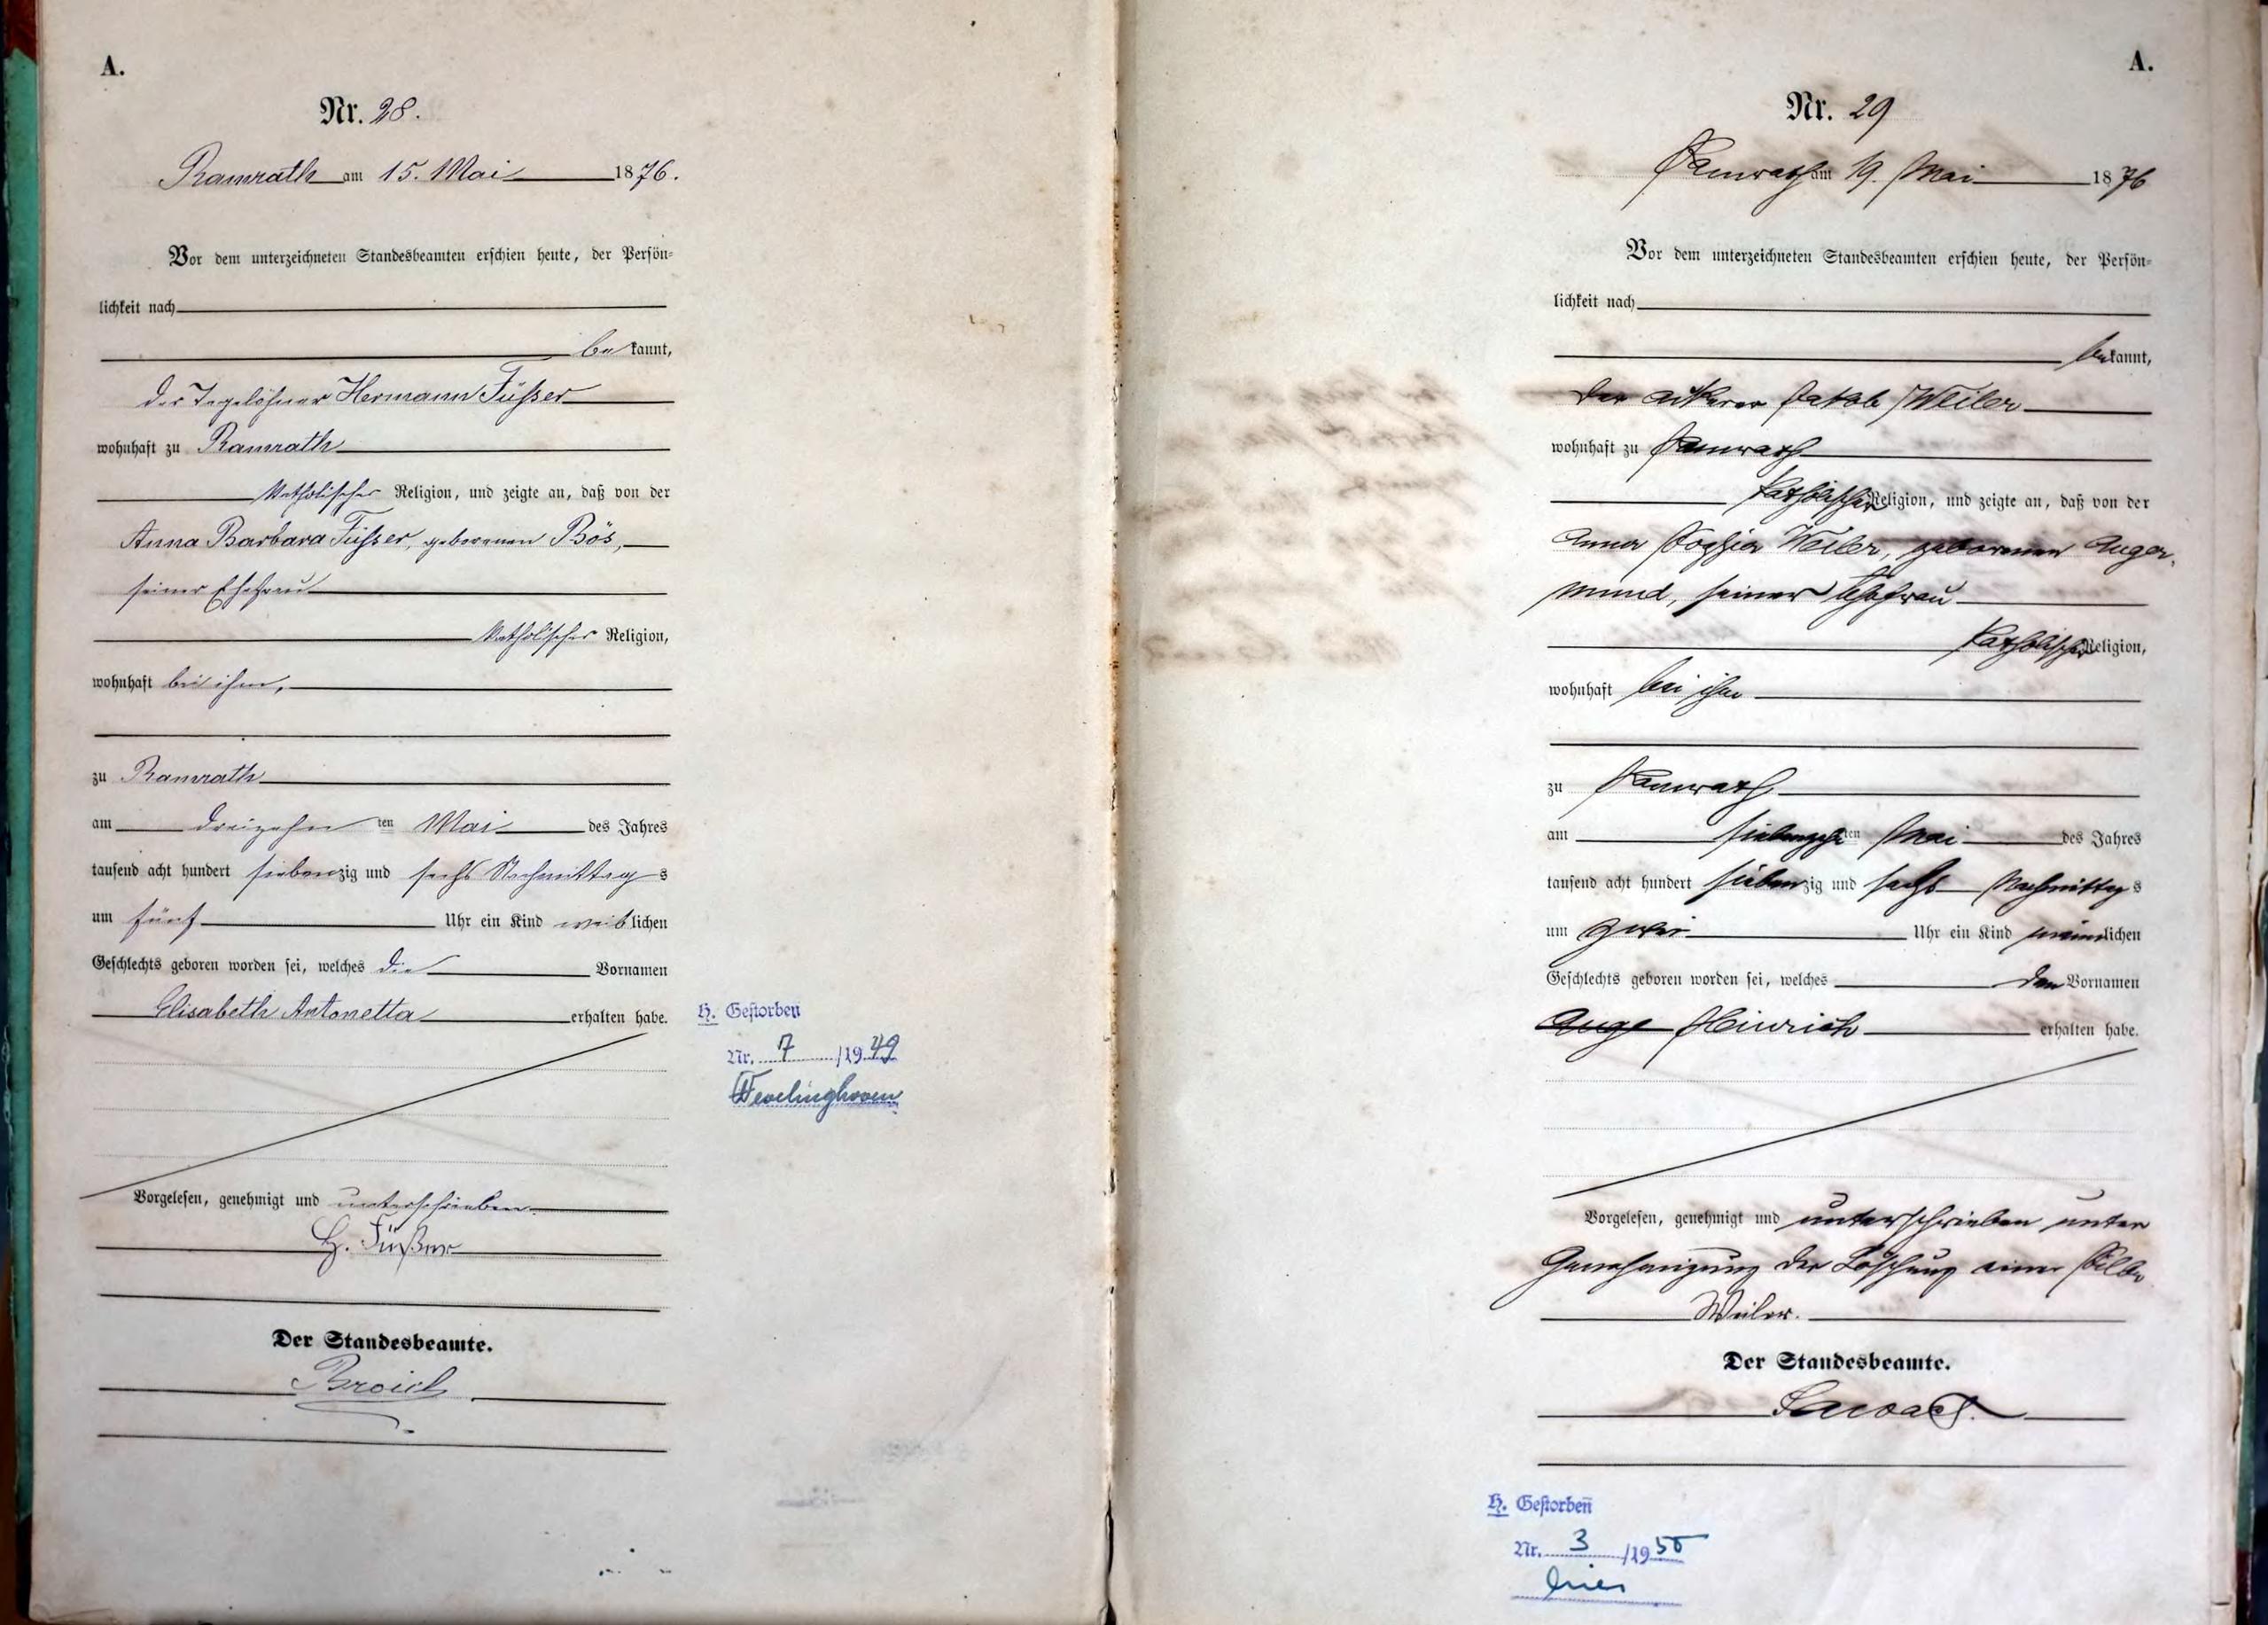 A.
Nr. 28.
Ramrath am 15. Mai 1876.
Vor dem unterzeichneten Standesbeamten erschien heute, der Persön-
lichkeit nach
be kannt,
der Tagelöhner Hermann Füsser
wohnhaft zu Ramrath
katholischer Religion, und zeigte an, daß von der
Anna Barbara Füsser, geborenen Bös,
seiner Ehefrau
katholischer Religion,
wohnhaft bei ihm,
zu Ramrath
am dreizehn ten Mai des Jahres
tausend acht hundert siebenzig und sechs Nachmittag s
um fünf Uhr ein Kind weiblichen
Geschlechts geboren worden sei, welches die Vornamen
Elisabeth Antonetta erhalten habe.
H. Gestorben
Nr. 7 /1949
Wevelinghoven
Vorgelesen, genehmigt und unterschrieben.
H. Füßer
Der Standesbeamte.
Broich
A.
Nr. 29
Ramrath am 19. Mai 1876
Vor dem unterzeichneten Standesbeamten erschien heute, der Persön-
lichkeit nach
bekannt,
der Ackerer Jakob Weiler
wohnhaft zu Ramrath
katholischer Religion, und zeigte an, daß von der
Anna Sophia Weiler, geborenen Anger-
mund, seiner Ehefrau
katholischer Religion,
wohnhaft bei ihm
zu Ramrath
am siebenzehnten Mai des Jahres
tausend acht hundert siebenzig und sechs Nachmittags
um zwei Uhr ein Kind männlichen
Geschlechts geboren worden sei, welches den Vornamen
Heinrich erhalten habe.
Vorgelesen, genehmigt und unterschrieben unter
Genehmigung der Löschung einer Silbe
Weiler.
Der Standesbeamte.
H. Gestorben
Nr. 3 /1950
hier